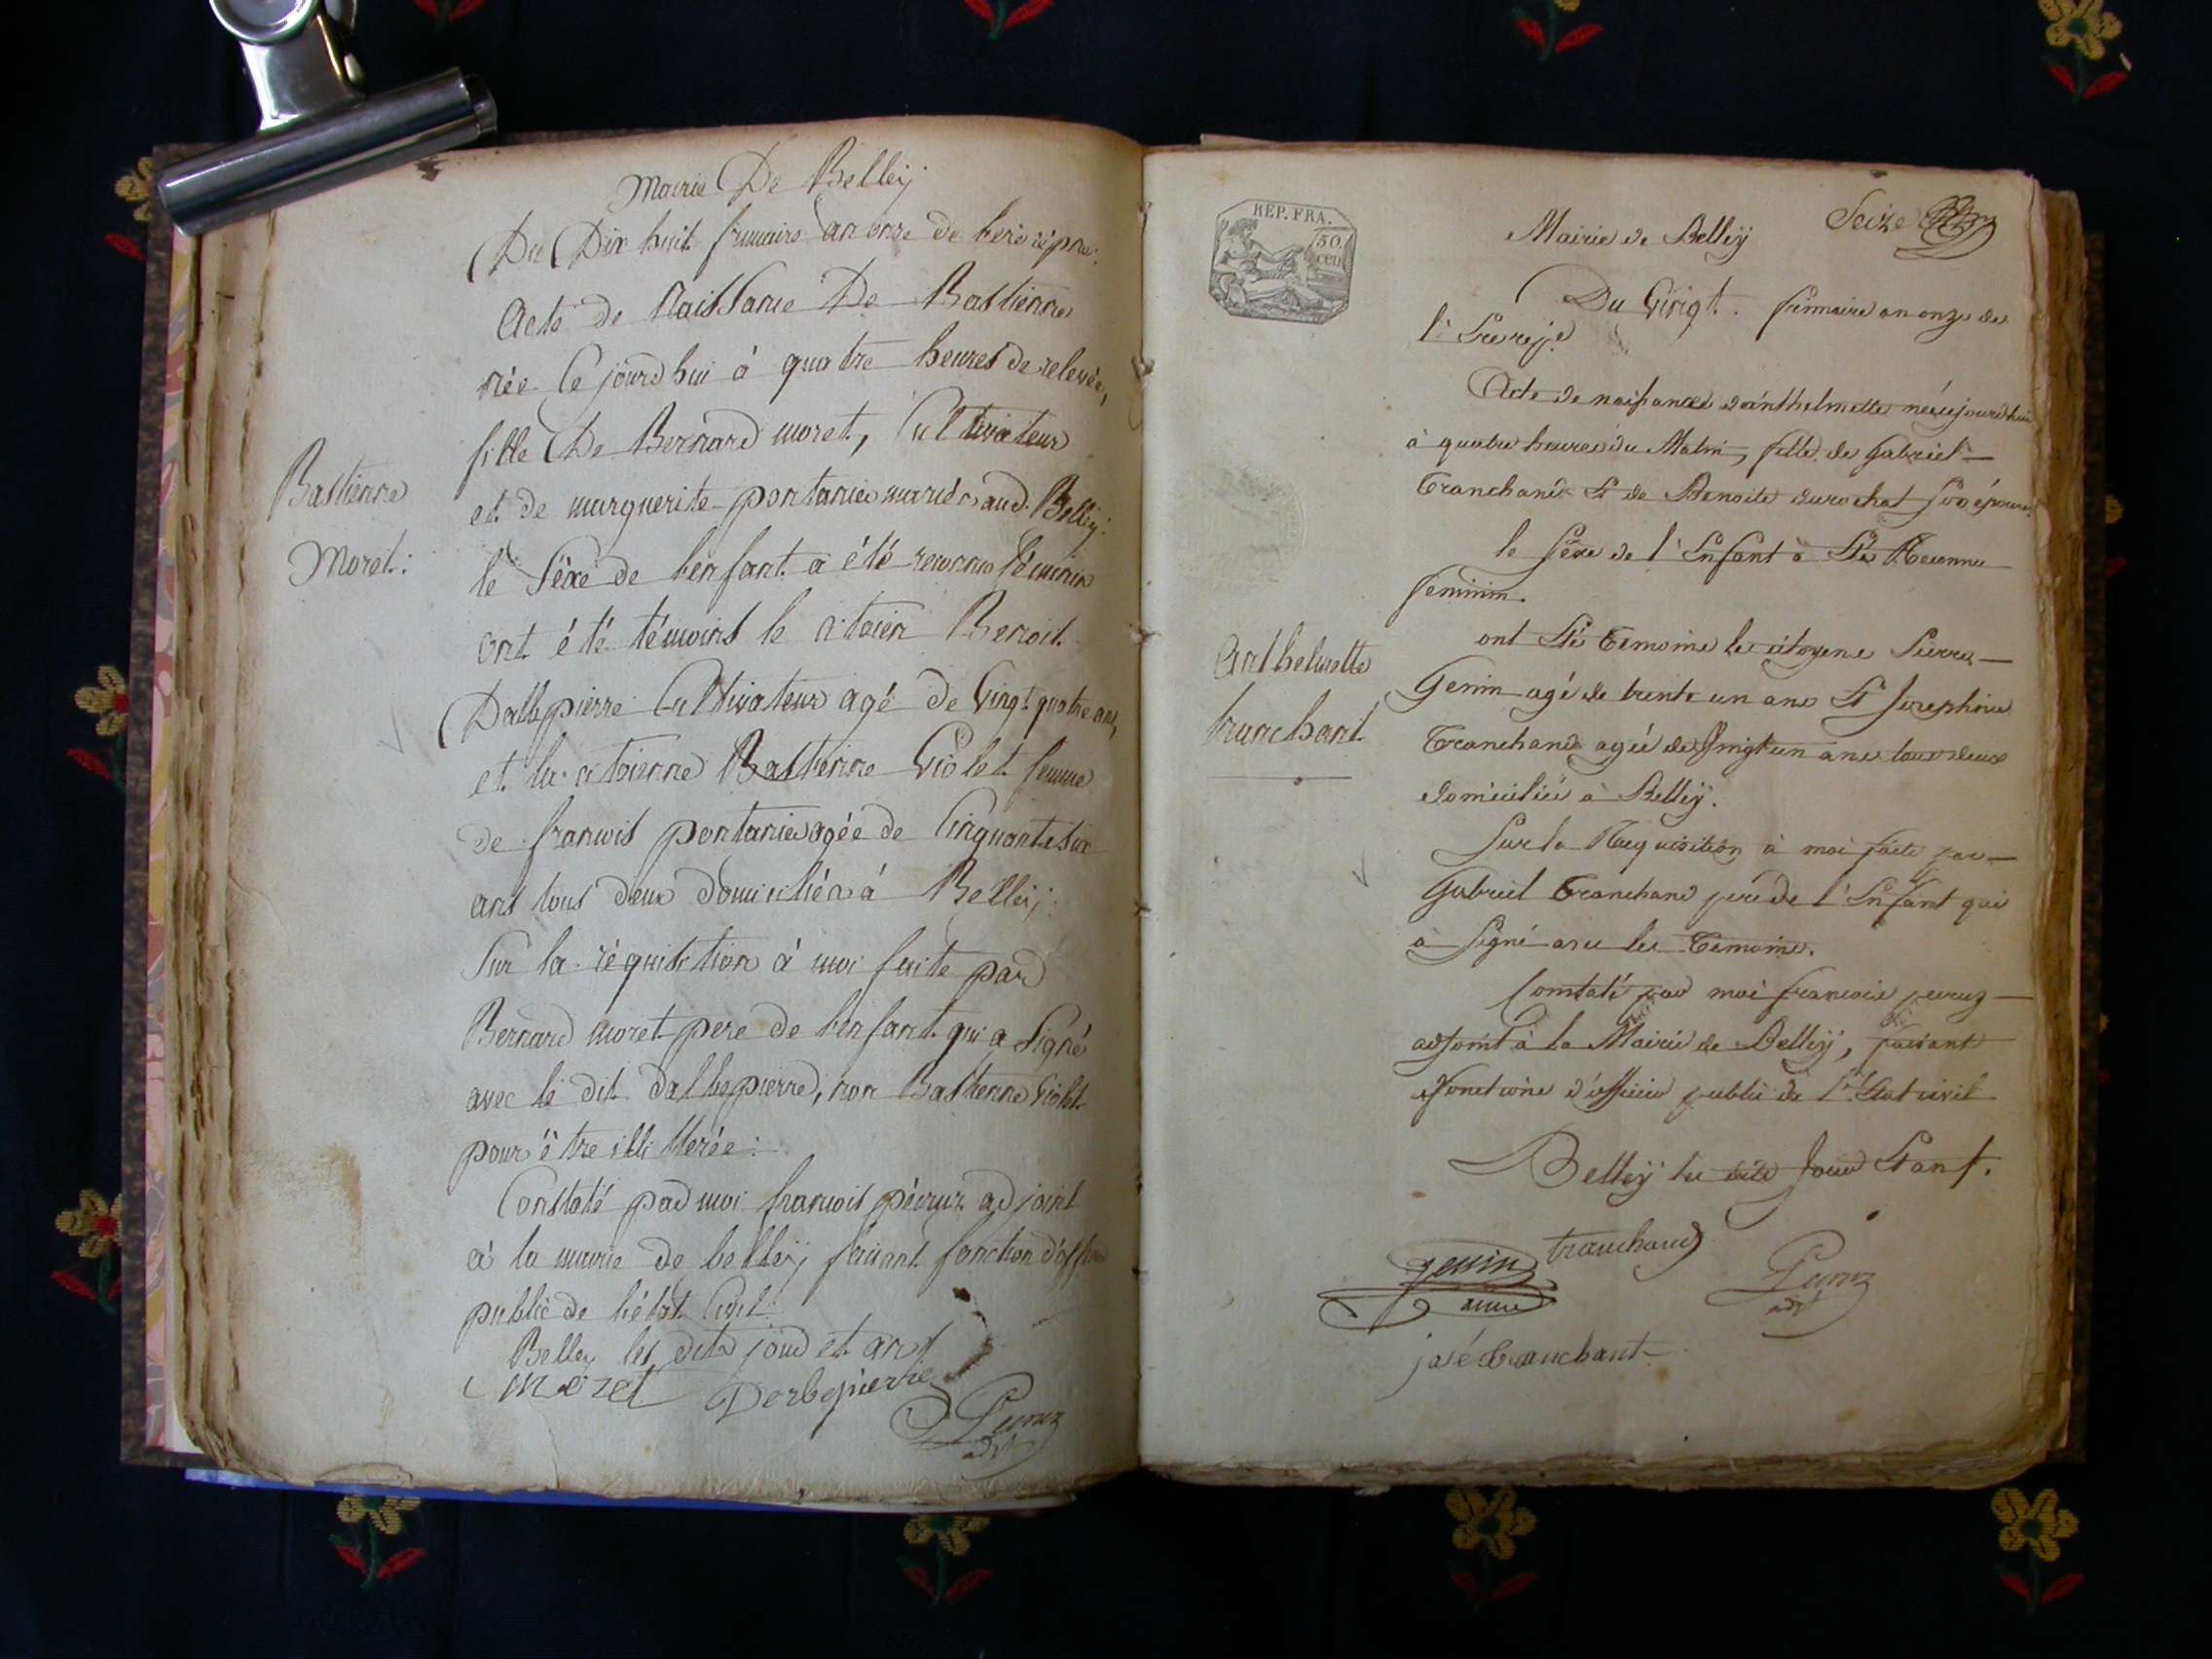 Mairie De Belleÿ
Du Dix huit frimaire an onze de l'ere répne.
Acte de Naissance De Bastienne
née Cejourdhui à quatre heures de relevée,
fille De Bernard moret, Cultivateur
et de marguerite pontanier mariés aud. Belleÿ:
Bastienne
Moret:
le Séxe de l'enfant a été reconnu féminin
ont été témoins le citoien Benoit
Dallepierre Cultivateur agé de Vingt quatre ans,
et la citoienne Bastienne Violet femme
de francois pontanier agée de Cinquante six
ans tous deux domiciliés à Belleÿ:
Sur la réquisition à moi faite par
Bernard moret pere de l'enfant qui a Signé
avec le dit dalbepierre, non Bastienne Violet
pour être illitterée:
Constaté par moi francois péeruz adjoint
à la mairie de belleÿ faisant fonction d'
public de l'état Civil:
Belley les dits jour et an f
moret Derbepierre
adt
REP. FRA.
50.
cen
Mairie de Belleÿ Seize
Du Vingt. frimaire an onze de
l'
Acte de naissance d'anthelmette née cejourdhui
à quatre heures du Matin, fille de Gabriel
Tranchand Et de Benoite durochat Son épouse
le Séxe de l'Enfant à Eté Reconnu
feminin.
Anthelmette
tranchant
ont Eté Temoins les citoyens Pierre
Genin agé de trente un ans Et Josephine
Tranchand agée de Vingt un ans tous deux
domiciliés à Belleÿ.
Sur la Réquisition à moi faite par
Gabriel Tranchand pere de l'Enfant qui
à Signé avec les Temoins.
Constaté par moi francois peeruz
adjoint à la Mairie de Belleÿ, faisant
fonctions d'officier public de l'Etat civil
Belleÿ les dits Jour Et an f.
genin tranchand
adt
josé tranchant